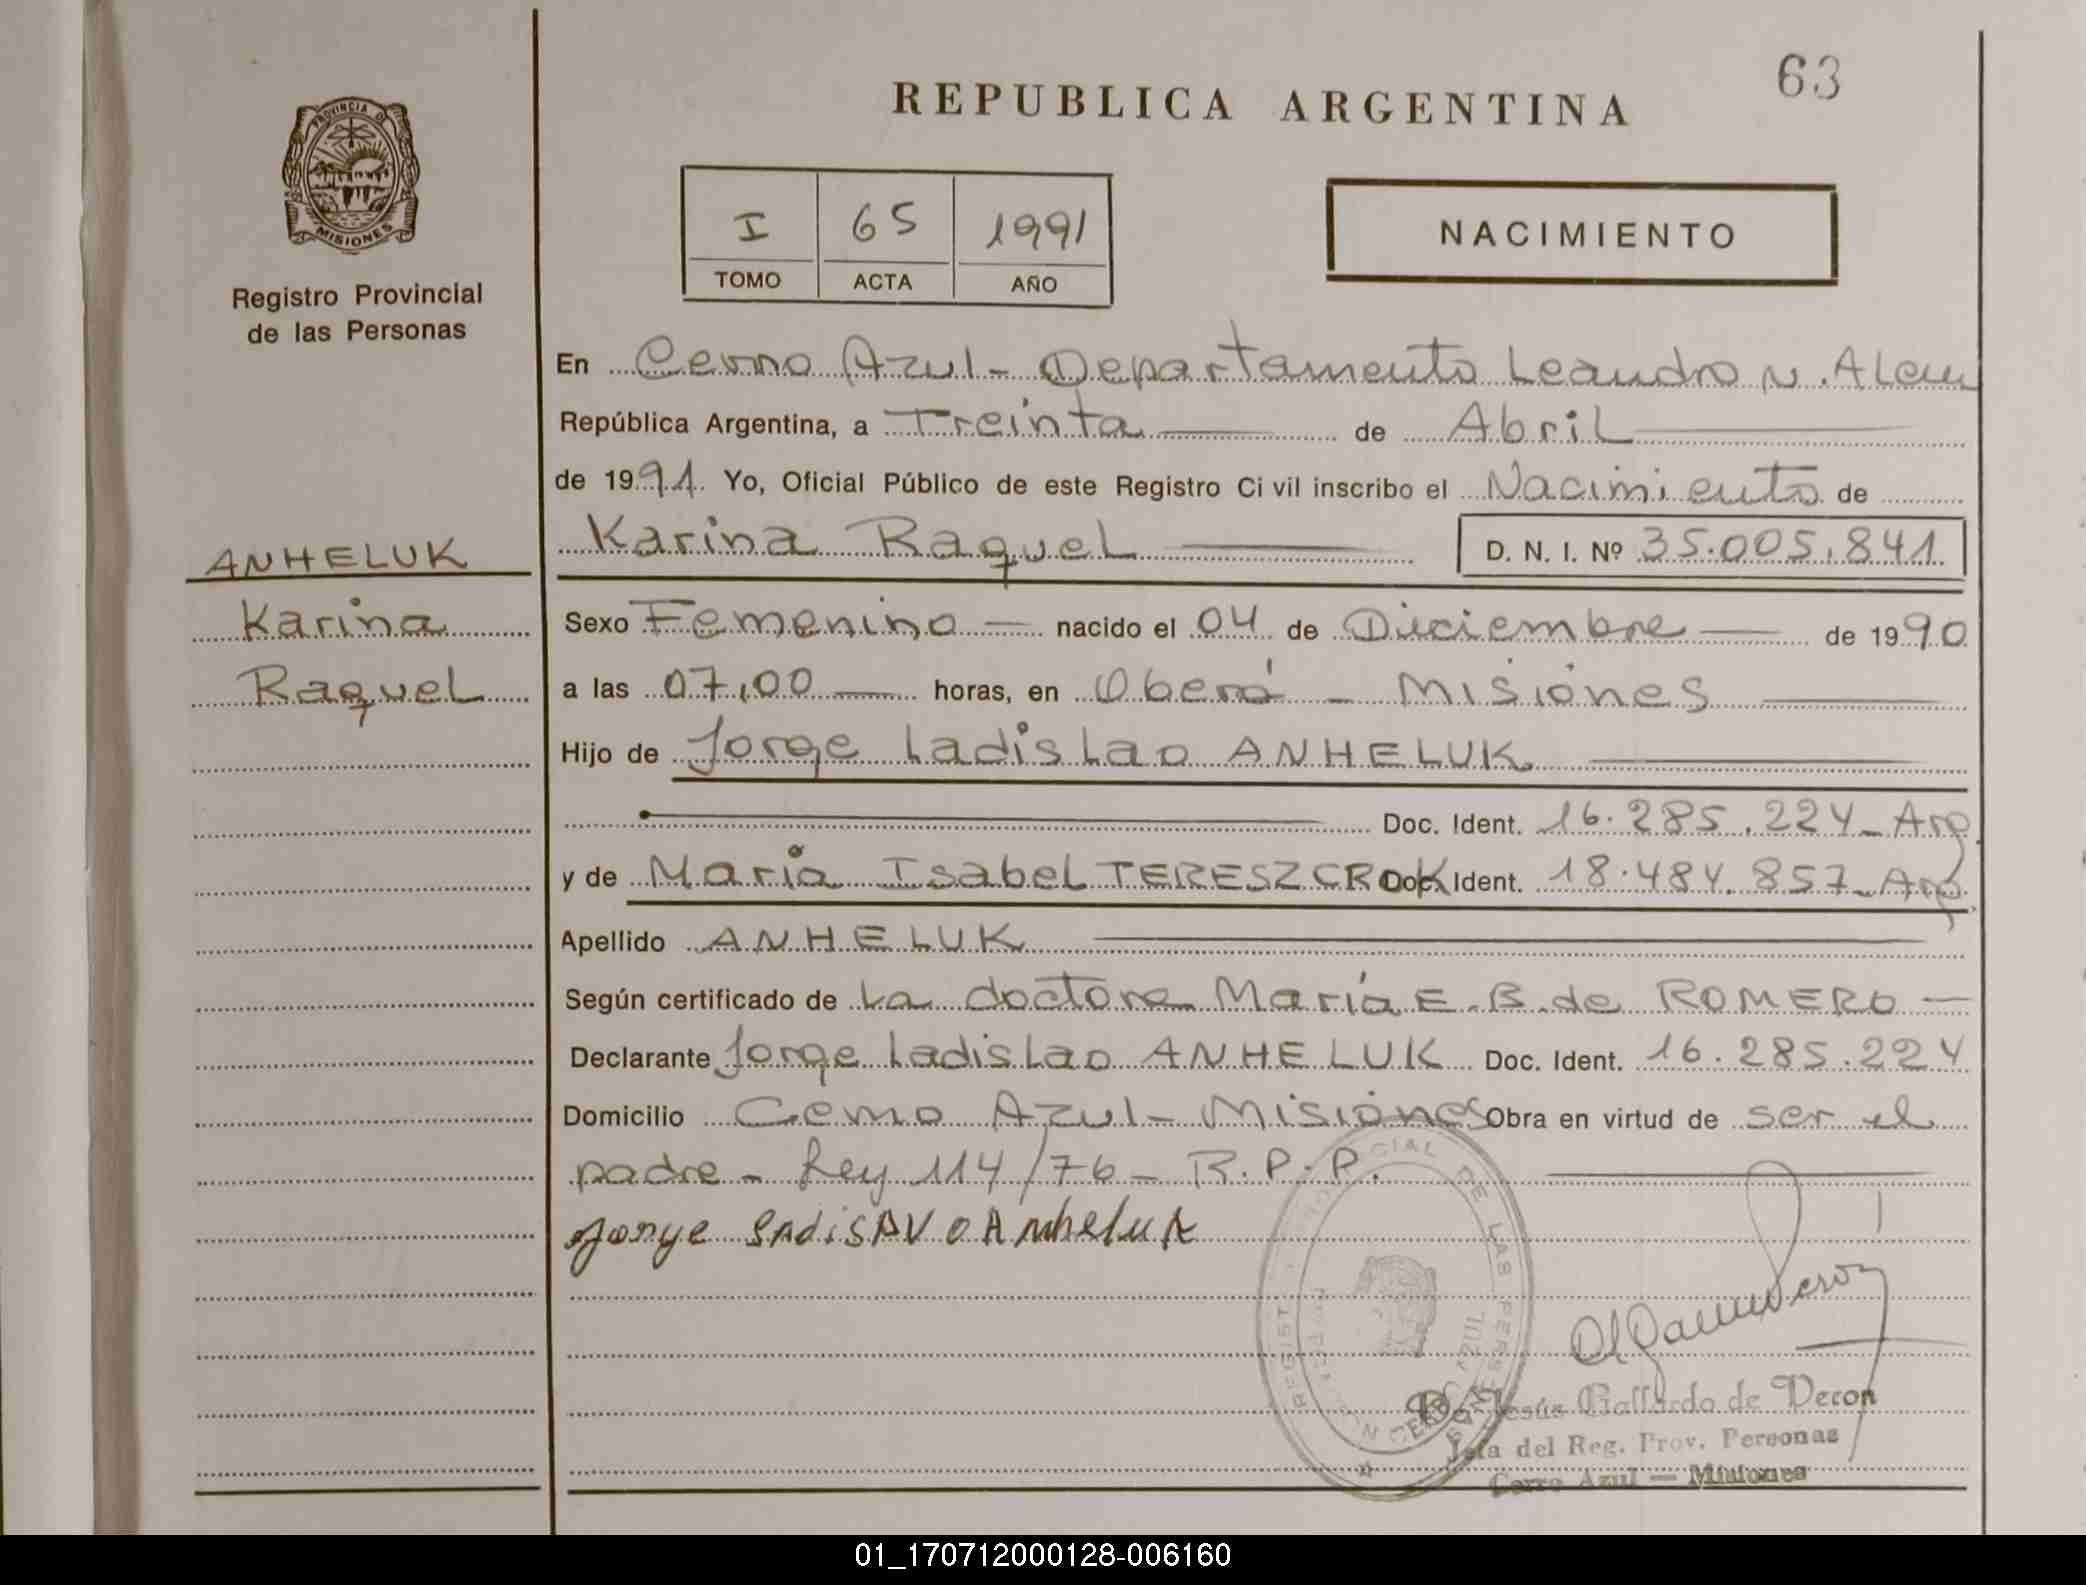 63
REPUBLICA ARGENTINA
PROVINCIA DE
MISIONES
Registro Provincial
de las Personas
I 65 1991
TOMO ACTA AÑO
NACIMIENTO
En Cerro Azul - Departamento Leandro N. Alem
República Argentina, a Treinta de Abril
de 1991. Yo, Oficial Público de este Registro Civil inscribo el Nacimiento de
ANHELUK
Karina Raquel D. N. I. Nº 35.005.841
Karina
Raquel
Sexo Femenino nacido el 04 de Diciembre de 1990
a las 07,00 horas, en Oberá - Misiones
Hijo de Jorge Ladislao ANHELUK
Doc. Ident. 16.285.224 - Arg.
y de María Isabel TERESZCROK Doc. Ident. 18.484.857 - Arg.
Apellido ANHELUK
Según certificado de La doctora María E. B. de ROMERO
Declarante Jorge Ladislao ANHELUK Doc. Ident. 16.285.224
Domicilio Cerro Azul - Misiones Obra en virtud de ser el
padre - Ley 114/76 - R.P.P.
Jorge Anheluk
Jesús Gallardo de Decon
Jefa del Reg. Prov. Personas
Cerro Azul — Misiones
01_170712000128-006160